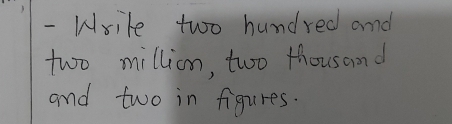 - Write two hundred and
two million, two thousand
and two in figures.